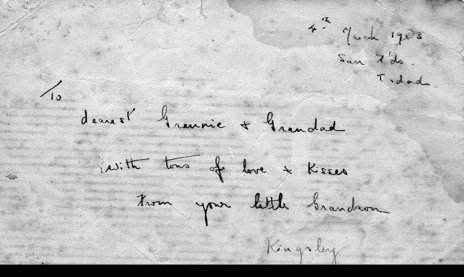 4th March 19
San F'do.
T.dad
To
dearest Grannie & Grandad
with tons of love & Kisses
from your little Grandson
Kingsley